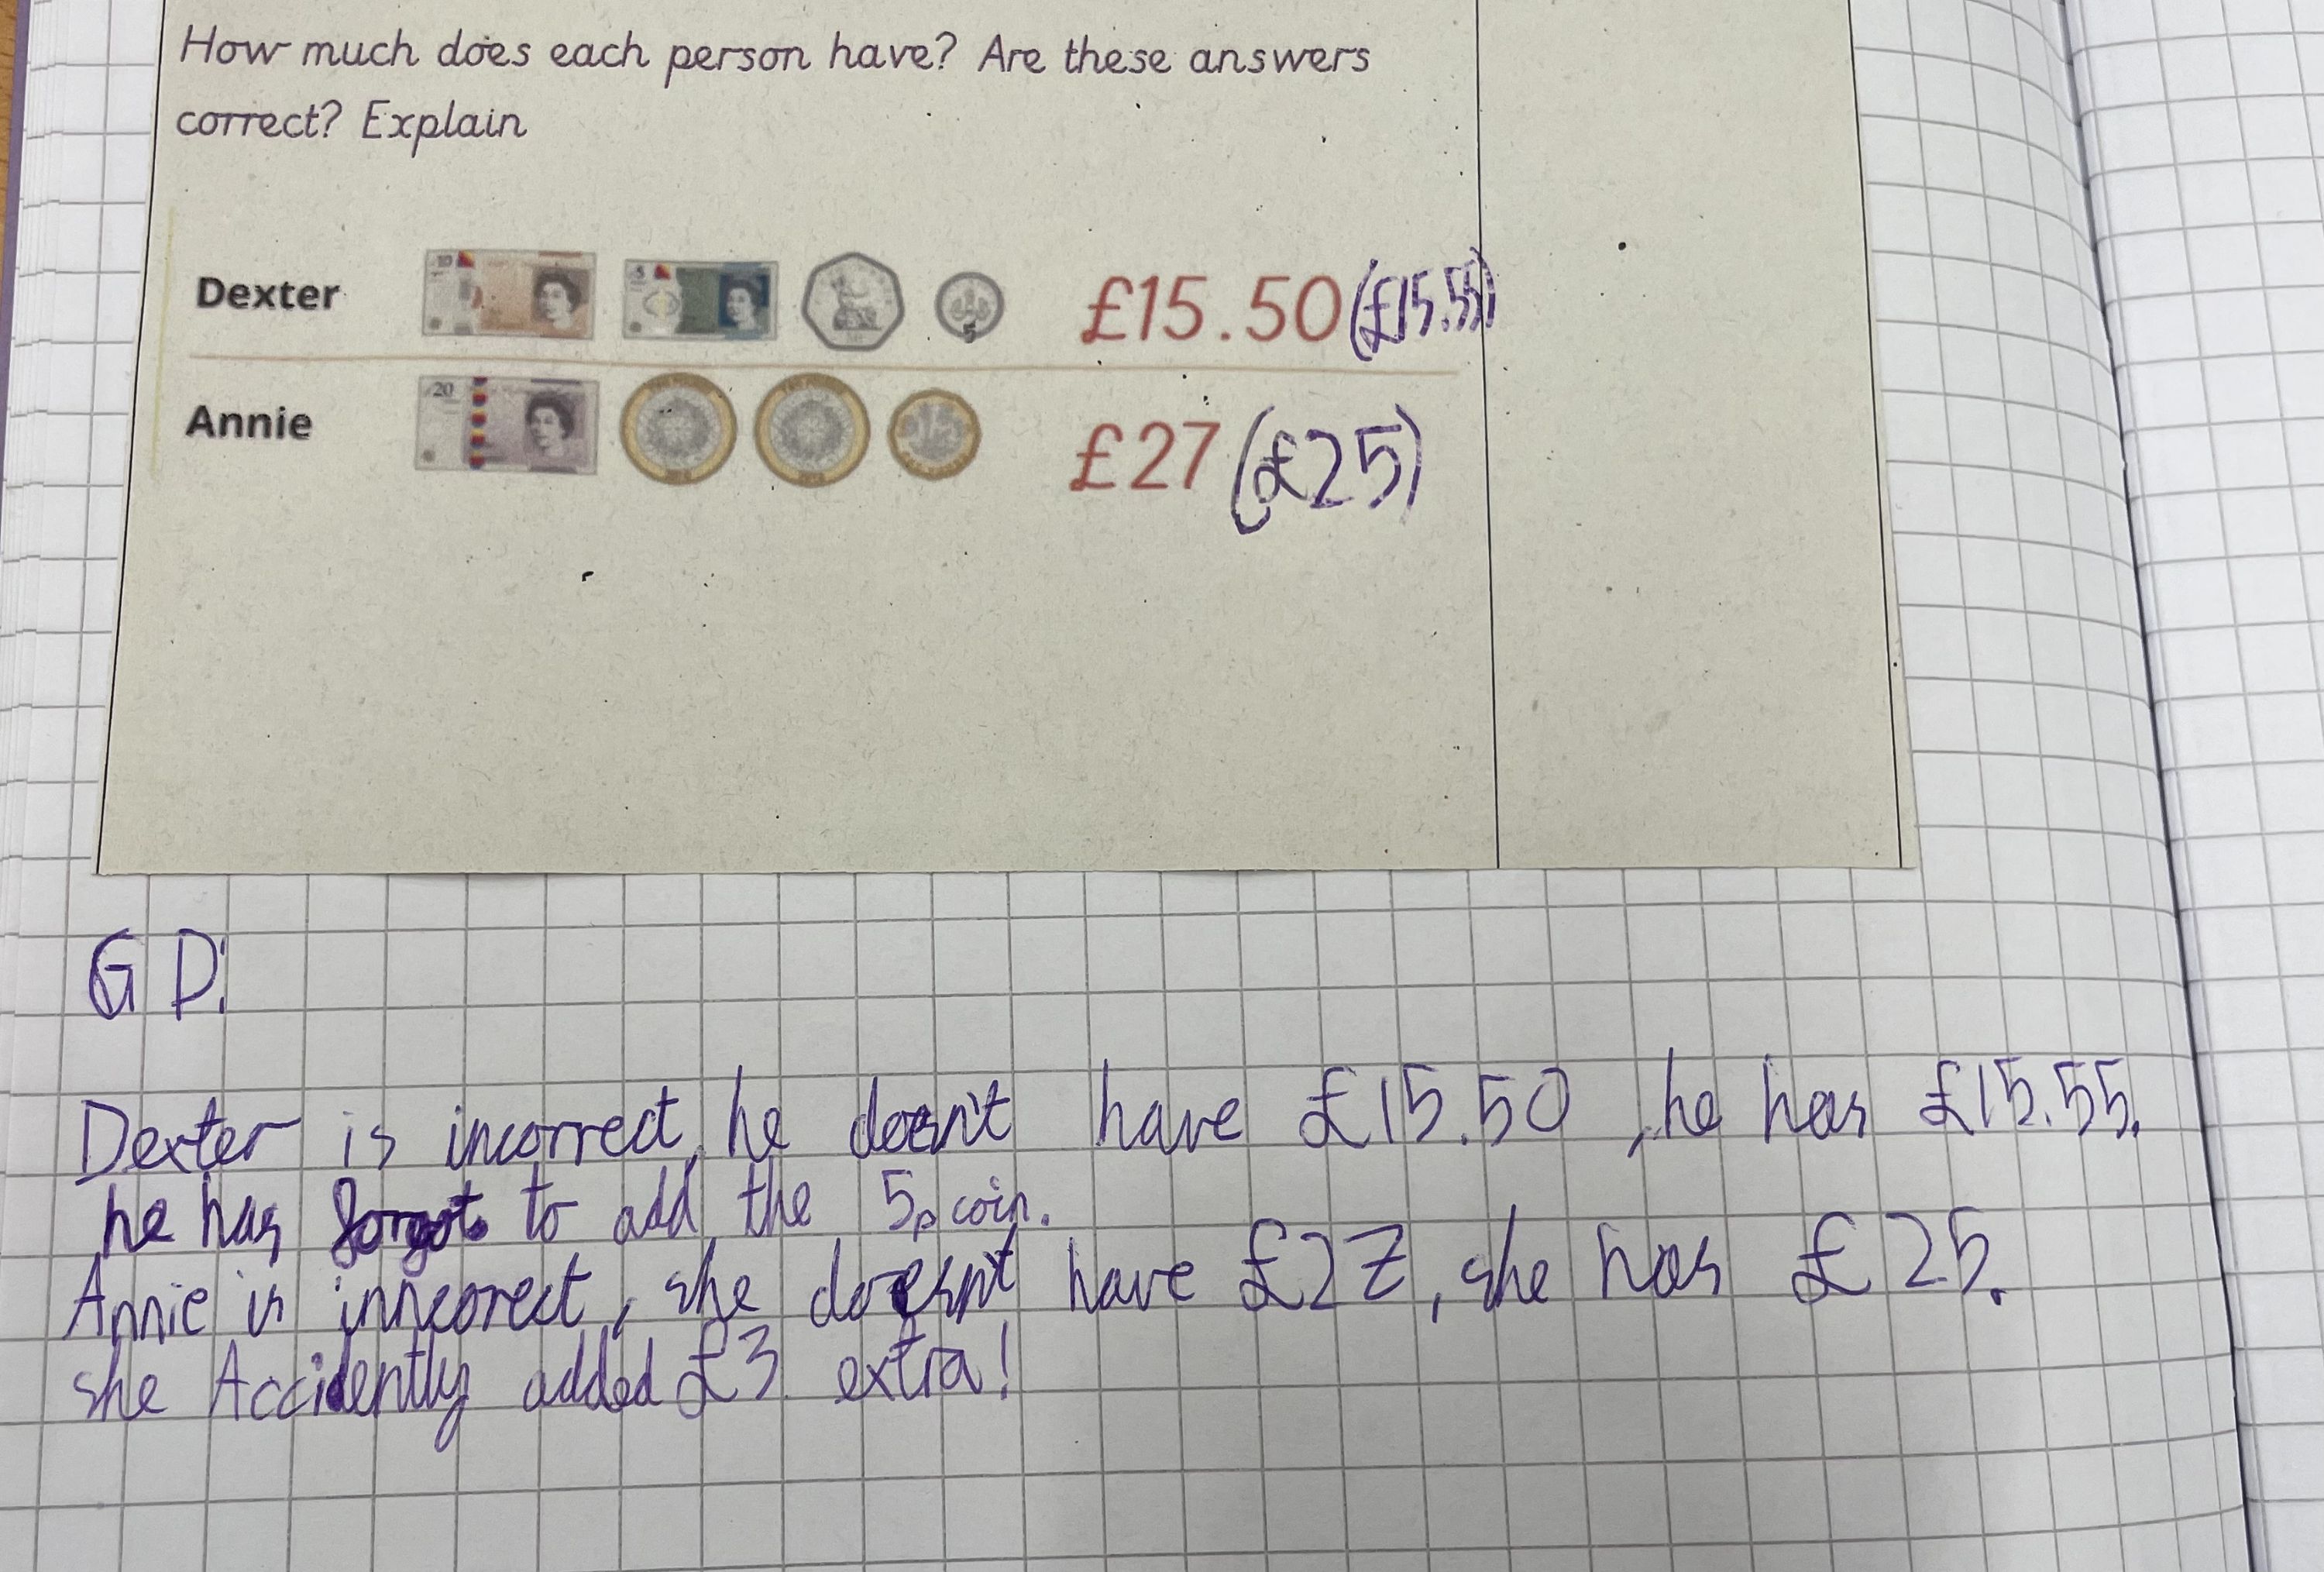 How much does each person have? Are these answers
correct? Explain
Dexter 10 5 5 £15.50 (£15.55)
Annie 20 £27 (£25)
G D:
Dexter is incorrect, he doesn't have £15.50, he has £15.55.
he has forgot to add the 5p coin.
Annie is inncorect, she doesn't have £27, she has £25.
she Accidently added £3 extra!